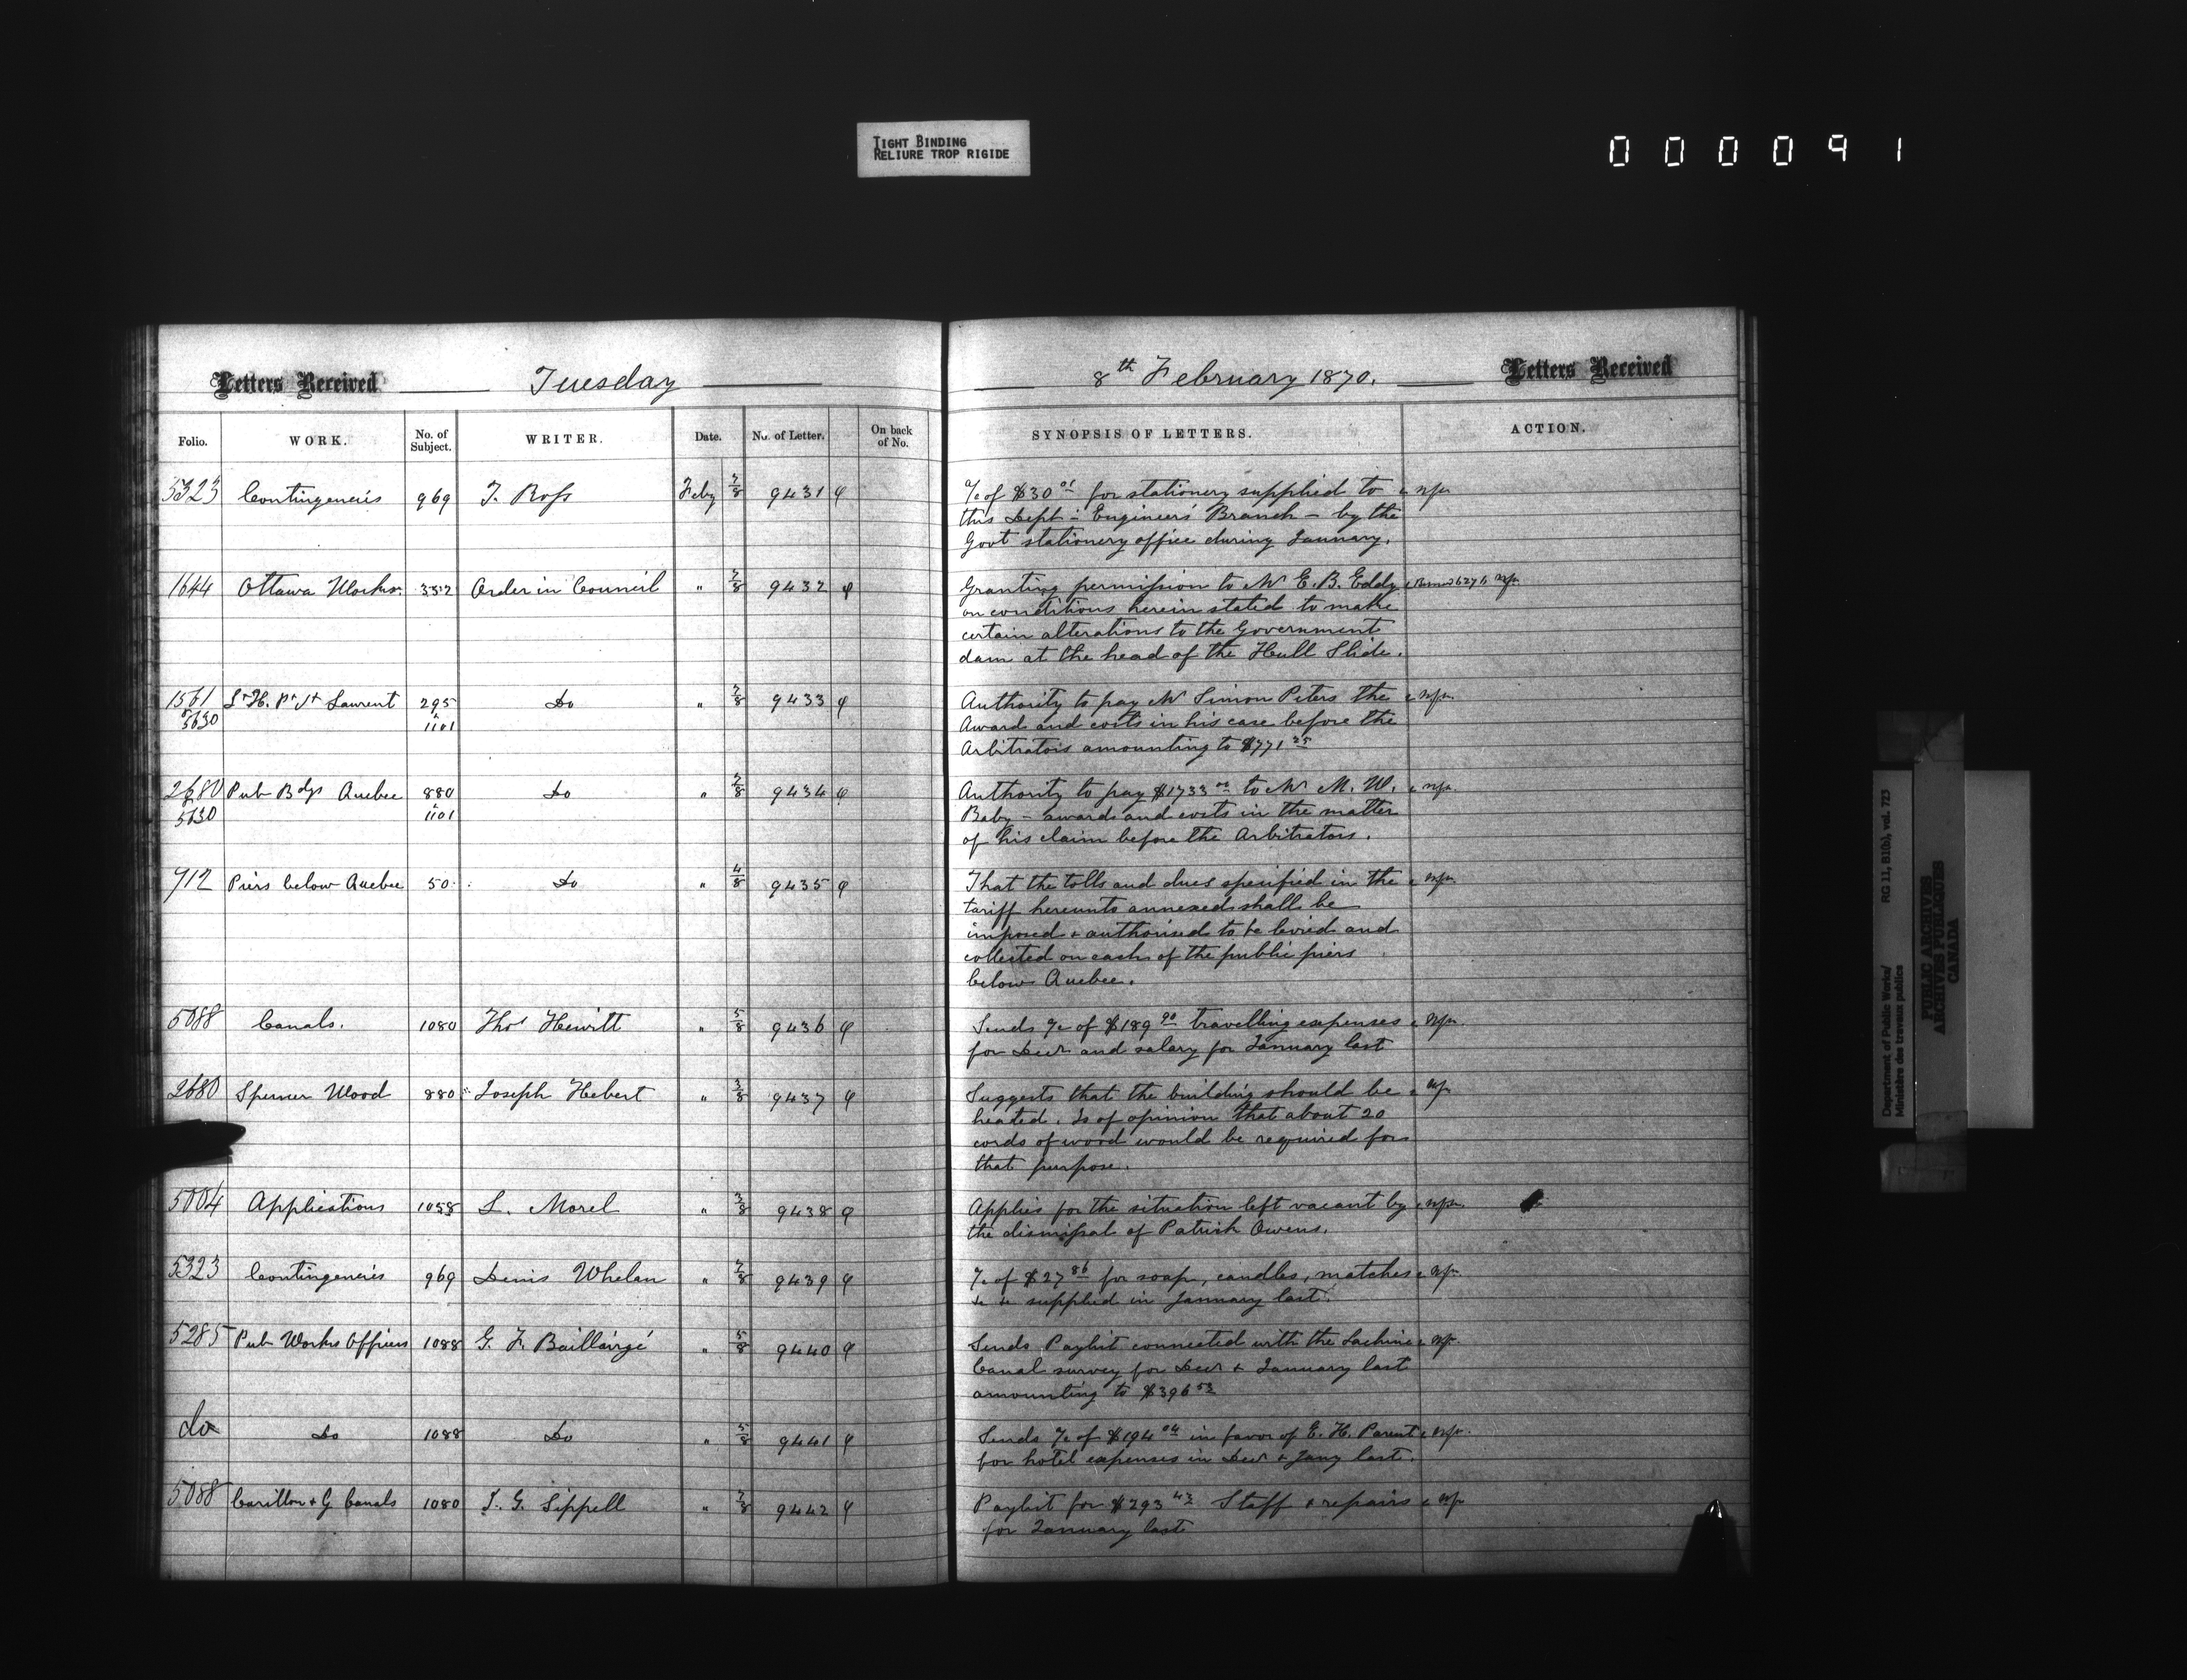 TIGHT BINDING
RELIURE TROP RIGIDE
000091
Letters Received Tuesday
8th February 1870. Letters Received
Folio. WORK. No. of Subject. WRITER. Date. No. of Letter. On back of No. SYNOPSIS OF LETTERS. ACTION.
5323 Contingencies 969 T. Ross Feby 7/8 9431 a/c of $30 for stationery supplied to
this Dept - Engineers' Branch - by the
Govt stationery office during January.
1644 Ottawa Works 332 Order in Council " 7/8 9432 Granting permission to Mr E. B. Eddy
on conditions herein stated to make
certain alterations to the Government
dam at the head of the Hull Slide.
1561 Laurent 295 Do " 7/8 9433 Authority to pay Mr Simon Peters the
5630 & 1101 Award and costs in his case before the
Arbitrators amounting to $771 25
2680 Pub Bdgs Quebec 880 Do " 7/8 9434 Authority to pay $1733 00 to Mr M. W.
5630 & 1101 Baby - awards and costs in the matter
of his claim before the Arbitrators.
712 Piers below Quebec 50 Do " 4/8 9435 That the tolls and dues specified in the
tariff hereunto annexed shall be
imposed & authorised to be levied and
collected on each of the public piers
below Quebec.
5088 Canals. 1080 Thos Hewitt " 5/8 9436 Sends a/c of $189 90 travelling expenses
for Decr and salary for January last
2680 Spencer Wood 880 Joseph Hebert " 3/8 9437 Suggests that the building should be
heated. Is of opinion that about 20
cords of wood would be required for
that purpose.
5004 Applications 1058 L. Morel " 3/8 9438 Applies for the situation left vacant by
the dismissal of Patrick Owens.
5323 Contingencies 969 Denis Whelan " 7/8 9439 a/c of $27 86 for soap, candles, matches
&c &c supplied in January last.
5285 Pub Works Officers 1088 G. F. Baillairgé " 5/8 9440 Sends Paylist connected with the Lachine
Canal survey for Decr & January last
amounting to $396 53
do Do 1088 Do " 5/8 9441 Sends a/c of $194 04 in favor of E. H. Parent
for hotel expenses in Decr & Jany last.
5088 Carillon & G Canals 1080 J. G. Sippell " 7/8 9442 Paylist for $293 43 Staff & repairs
for January last
Department of Public Works/ RG 11, B1(b), vol. 723
Ministère des travaux publics
PUBLIC ARCHIVES
ARCHIVES PUBLIQUES
CANADA